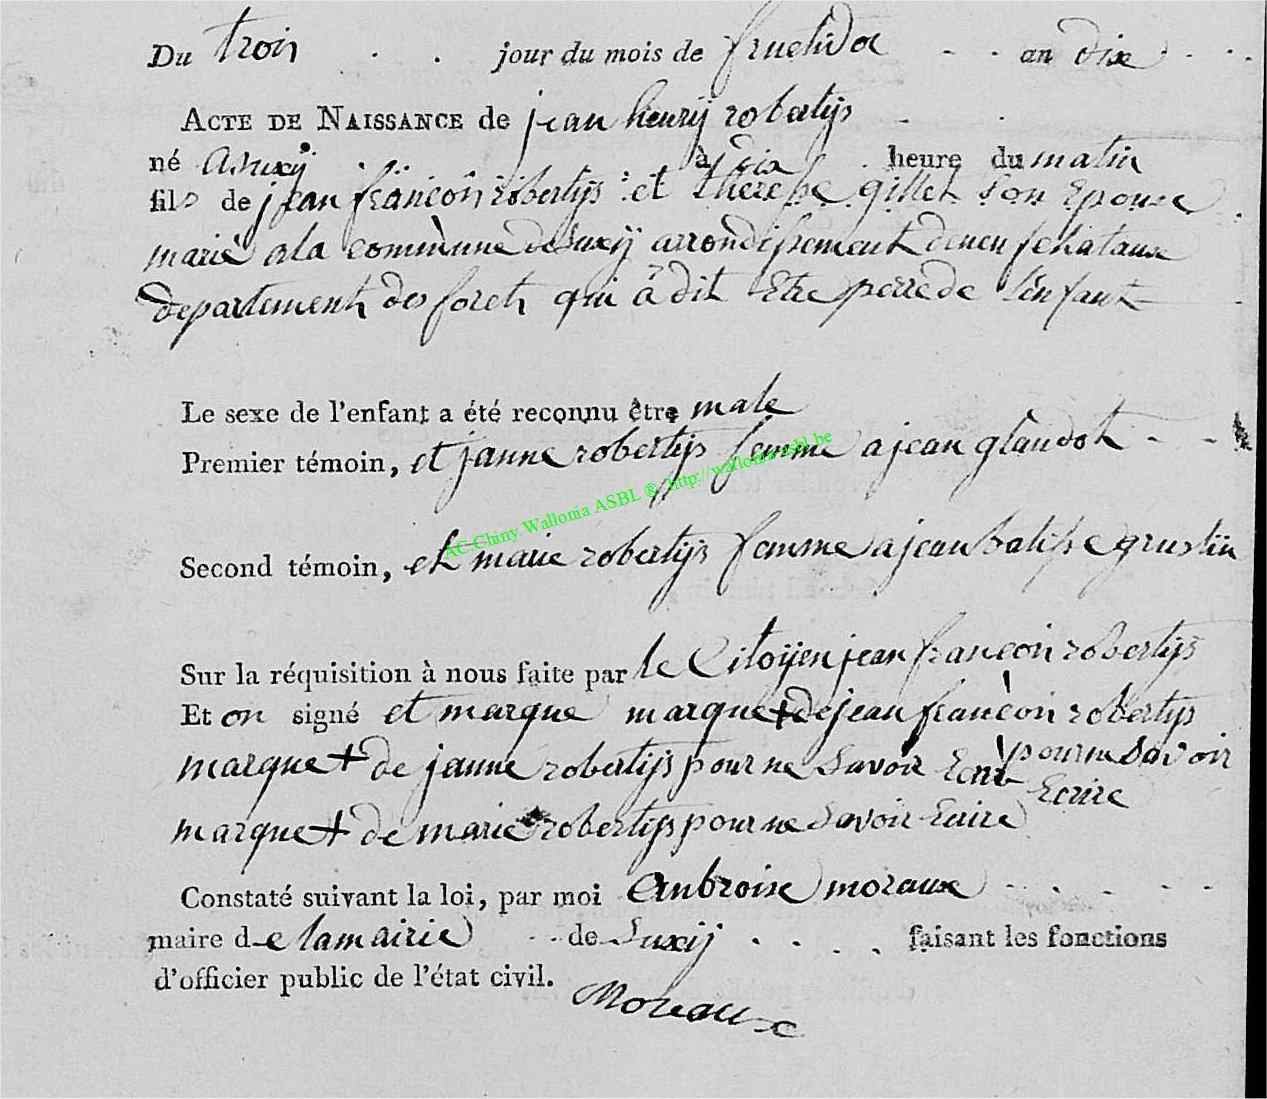 Du trois . . jour du mois de fructidor - - an dix - . .
ACTE DE NAISSANCE de jean henrÿ robertÿs
né a suxÿ . à dix . heure du matin
fils de jean françoin robertÿs : et theresse gillet son Epouse
marié ala commune de suxÿ arrondissement deneufchataux
departement des forets qui à dit Etre perre de l'enfant
Le sexe de l'enfant a été reconnu être male
Premier témoin, et janne robertÿs femme a jean glaudot - -
AC Chiny Wallonia ASBL ® http://wallonia-asbl.be
Second témoin, et marie robertÿs femme a jean batisse gruslin
Sur la réquisition à nous faite par le Citoÿen jean françoin robertÿs
Et on signé et marque marque + de jean françoin robertÿs
marque + de janne robertÿs pour ne savoir Ecrire pour ne savoir
Ecrire
marque + de marie robertÿs pour ne savoir Ecrire
Constaté suivant la loi, par moi Anbroise moraux - . . - -
maire de lamairie - - de Suxÿ . . . . faisant les fonctions
d'officier public de l'état civil.
Moraux